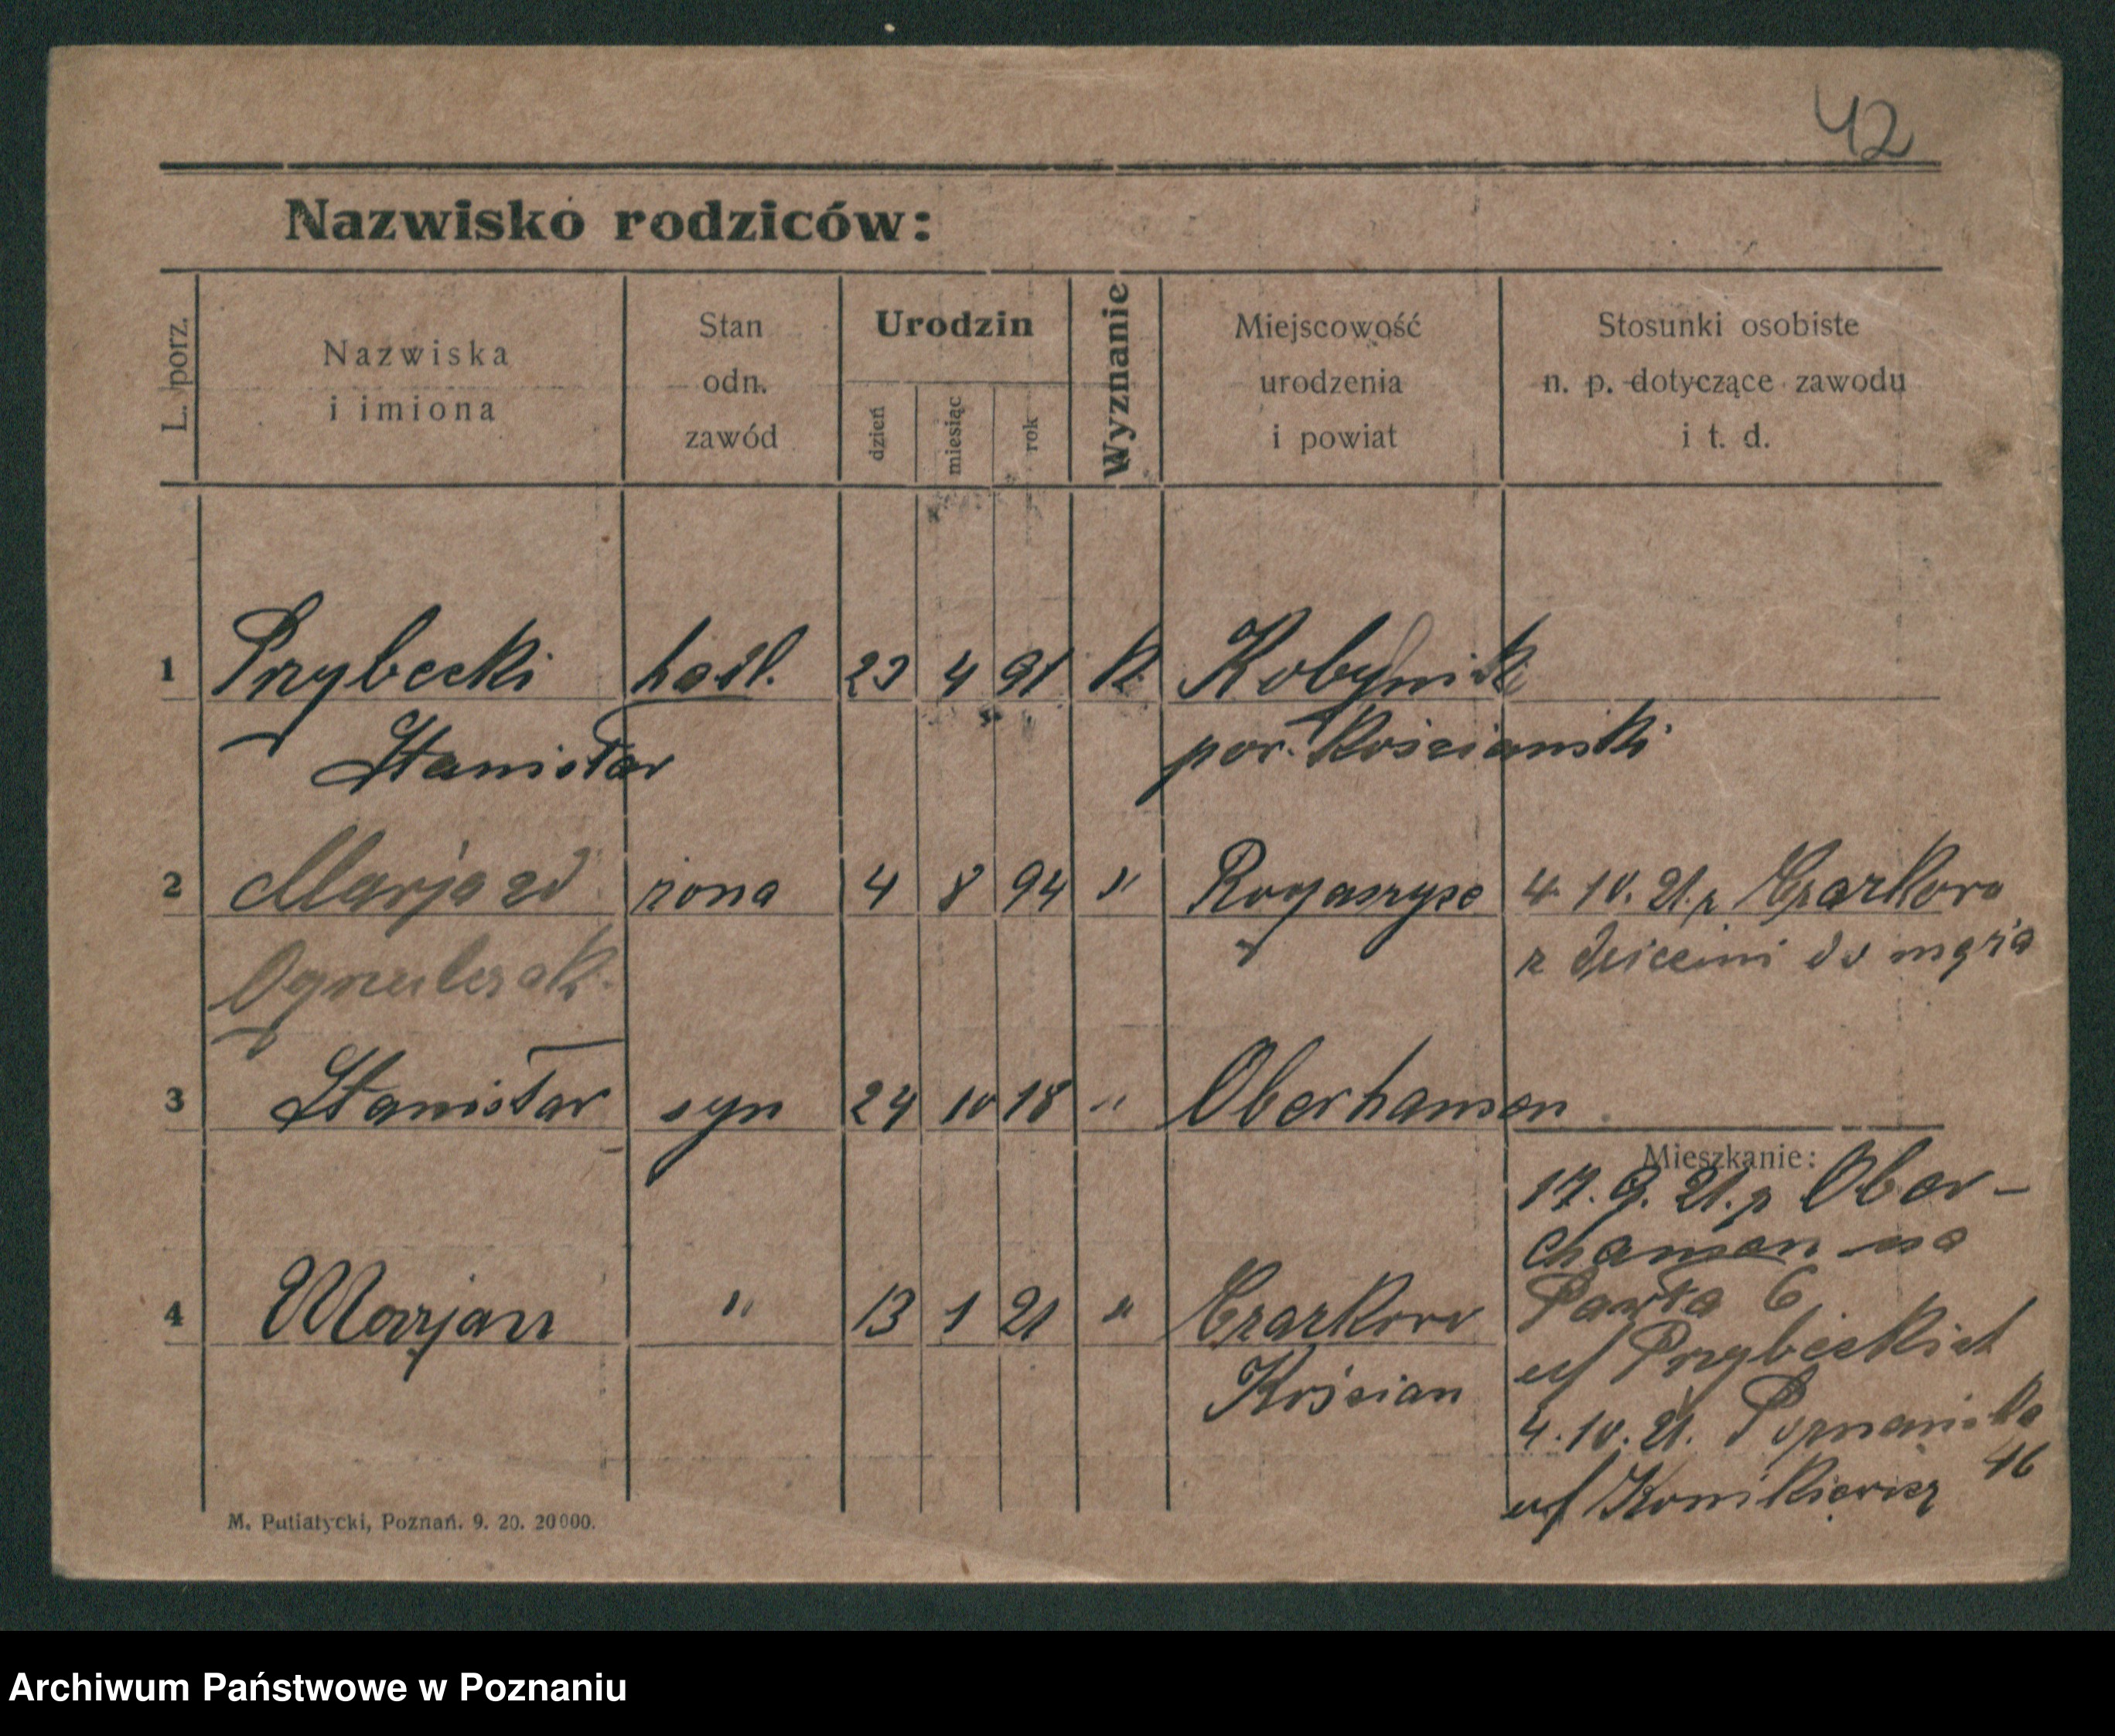 42
Nazwisko rodziców:
L. porz.
Nazwiska
i imiona
Stan
odn.
zawód
Urodzin
dzień
miesiąc
rok
Wyznanie
Miejscowość
urodzenia
i powiat
Stosunki osobiste
n. p. dotyczące zawodu
i t. d.
1 Przybecki 23 4 91 k. Kobylnik
Stanisław pow. Kościański
2 Marja zd żona 4 8 94 " 4. 10. 21. z Czarkowo
z dziećmi do męża
3 Stanisław syn 24 10 18 " Oberhausen
Mieszkanie:
17. 9. 21. z Ober-
hausen na
4 Marjan " 13 1 21 " Czarkowo
6
u/ Przybeckich
Kościan
4. 10. 21. Poznańska
46
u/
M. Putiatycki, Poznań. 9. 20. 20000.
Archiwum Państwowe w Poznaniu